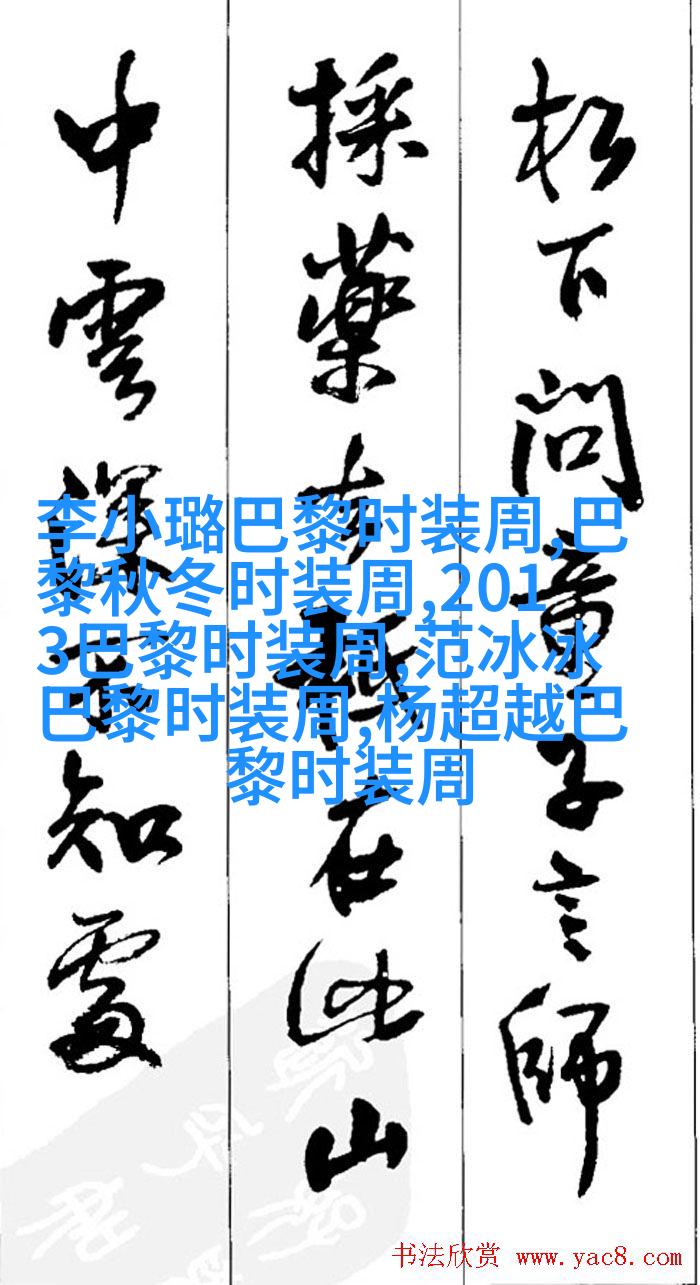 松下问童子言師
採藥去在此山
中雲深不知處
李小璐巴黎时装周,巴
黎秋冬时装周,201
3巴黎时装周,范冰冰
巴黎时装周,杨超越巴
黎时装周
书法欣赏 www.yac8.com